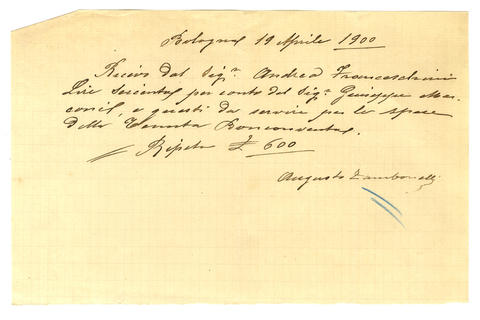 Bologna 19 Aprile 1900
Ricevo dal Sigr. Andrea Franceschini
Lire Seicento, per conto del Sigr. Giuseppe Mar-
coni, e questi da servire per le spese
della Tenuta Bonconvento.
Ripeto £ 600
Augusto Zambonelli